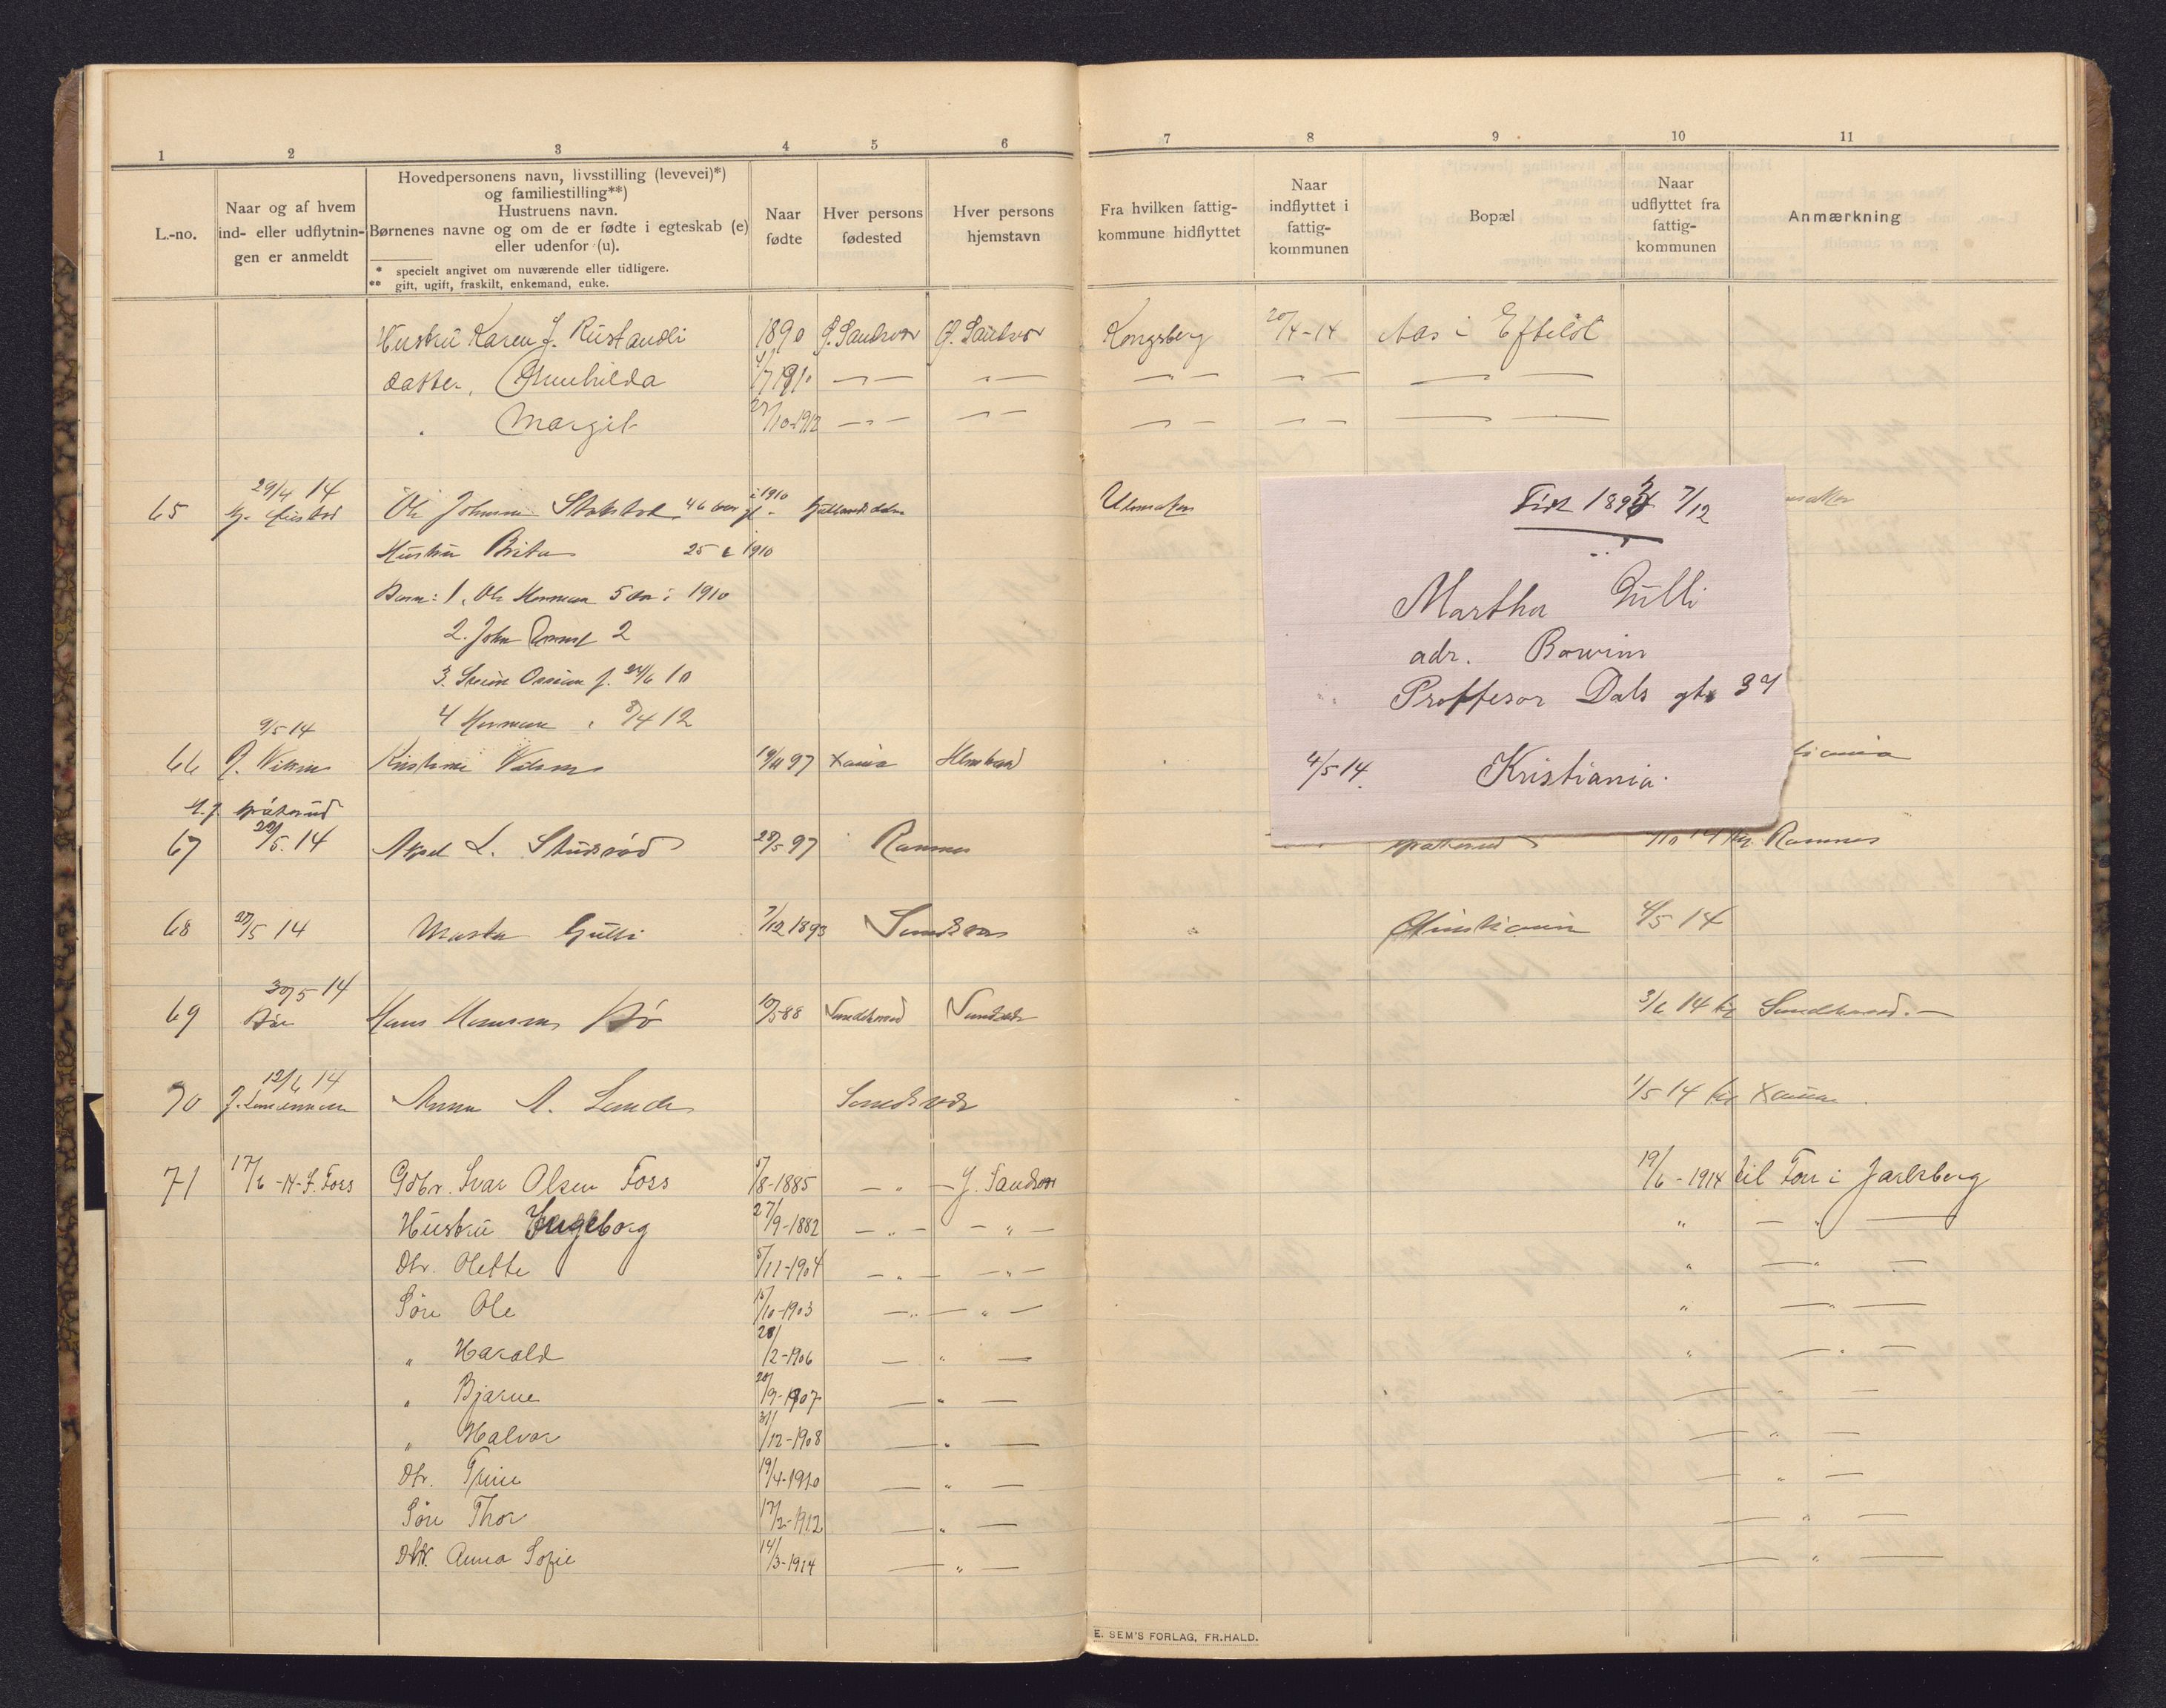 1 2 3 4 5 6 7 8 9 10 11
L.-no.
Naar og af hvem
ind- eller udflytnin-
gen er anmeldt
Hovedpersonens navn, livsstilling (levevei)*)
og familiestilling**)
Hustruens navn.
Børnenes navne og om de er fødte i egteskab (e)
eller udenfor (u).
* specielt angivet om nuværende eller tidligere.
** gift, ugift, fraskilt, enkemand, enke.
Naar
fødte
Hver persons
fødested
Hver persons
hjemstavn
Fra hvilken fattig-
kommune hidflyttet
Naar
indflyttet i
fattig-
kommunen
Bopæl
Naar
udflyttet fra
fattig-
kommunen
Anmærkning
Hustru Karen J. Rustandli 1890 G. Sandsvær G. Sandsvær Kongsberg 20/4-14 Aas i Efteløt
datter, Gunhilda 4/7 1910 — " — — " — — " — — " — — " —
" Margit 27/10-1912 — " — — " — — " — — " — — " —
65 29/4 14 Ole Johnsen Stokstad 46 aar i 1910
Hustru Brita 25 i 1910
Barn: 1. Ole Herman 5 aar i 1910
2. John 2
3. f. 24/6 10
4 Herman " 8/4 12
Født 1893 7/12
Martha Gülli
adr. Bowim
Proffesor Dals gt. 37
4/5 14. Kristiania.
66 9/5 14 Nilsen Kristine Nilsen 19/11 97 Xania
67 22/5. 14 Aksel L. Studsrød 28/5 97 Ramnes Ramnes
68 28/5 14 Marta Gülli 7/12 1893 Sandsvær Christiania 4/5 14
69 30/5 14 Hans Hansen Bø 10/5 88 3/6 14 til
70 12/6 14 Anna A. Lunde Sandsvær 1/5 14 til Xania
71 17/6 -14- I. Foss Gdbr. Ivar Olsen Foss 5/8-1885 — " — Y. Sandsvær 19/6 - 1914 til Foss i Jarlsberg
Hustru Ingeborg 27/9-1882 — " — — " — " — " —
Dtr. Olette 5/11-1904 — " — — " — " — " —
Søn Ole 15/10-1903 — " — " — " — " —
" Harald 20/2-1906 — " — " — " —
" Bjarne 20/9-1907 — " — — " —
" Halvor 31/12-1908 — " — — " —
Dtr. Trine 19/4-1910 — " — — " —
Søn Thor 17/2-1912 — " — — " —
Dtr. Anna Sofie 14/3-1914 — " — — " —
E. SEM'S FORLAG, FR.HALD.